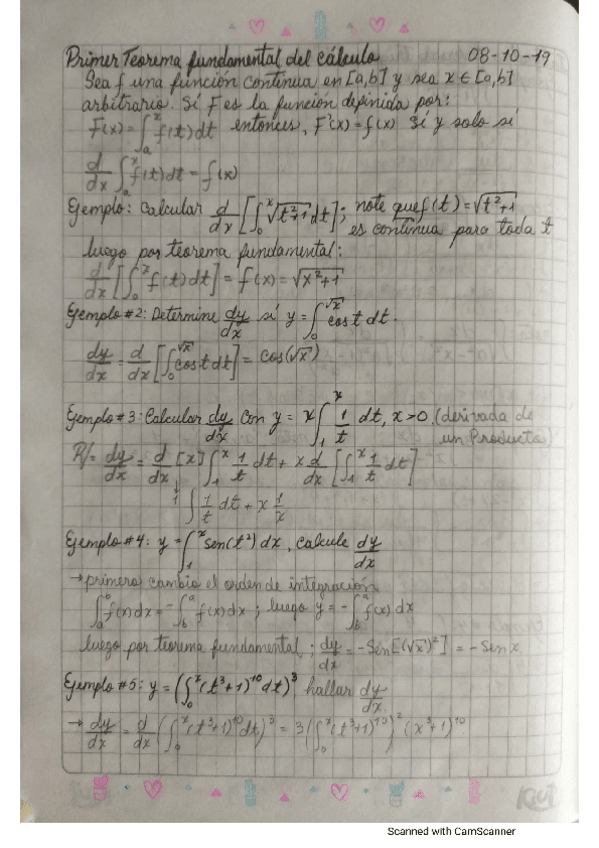 Primer Teorema fundamental del cálculo 08-10-19
Sea f una función continua en [a,b] y sea x ∈ [a,b]
arbitrario. Si F es la función definida por:
F(x) = ∫ₐˣ f(t)dt entonces, F'(x) = f(x) Sí y solo si
d/dx ∫ₐˣ f(t)dt = f(x)
Ejemplo: Calcular d/dx [∫₀ˣ √(t²+1) dt]; note que f(t) = √(t²+1)
es continua para toda t
luego por teorema fundamental:
d/dx [∫₀ˣ f(t)dt] = f(x) = √(x²+1)
Ejemplo #2: Determine dy/dx si y = ∫₀^√x cos t dt.
dy/dx = d/dx [∫₀^√x cos t dt] = cos(√x)
Ejemplo #3: Calcular dy/dx con y = x ∫₁ˣ 1/t dt, x>0. (derivada de
un Producto)
R/= dy/dx = d/dx [x] ∫₁ˣ 1/t dt + x d/dx [∫₁ˣ 1/t dt]
1 ∫ 1/t dt + x 1/x
Ejemplo #4: y = ∫₁ˣ sen(t²) dx, calcule dy/dx
→ primero cambio el orden de integración
f(x)dx = -∫ f(x)dx ; luego y = -∫ f(x) dx
luego por teorema fundamental ; dy/dx = -Sen[(√x)²] = -Sen x.
Ejemplo #5: y = (∫₀ˣ (t³+1)¹⁰ dt)³ hallar dy/dx.
→ dy/dx = d/dx (∫₀ˣ (t³+1)¹⁰ dt)³ = 3(∫₀ˣ (t³+1)¹⁰)² (x³+1)¹⁰
Scanned with CamScanner